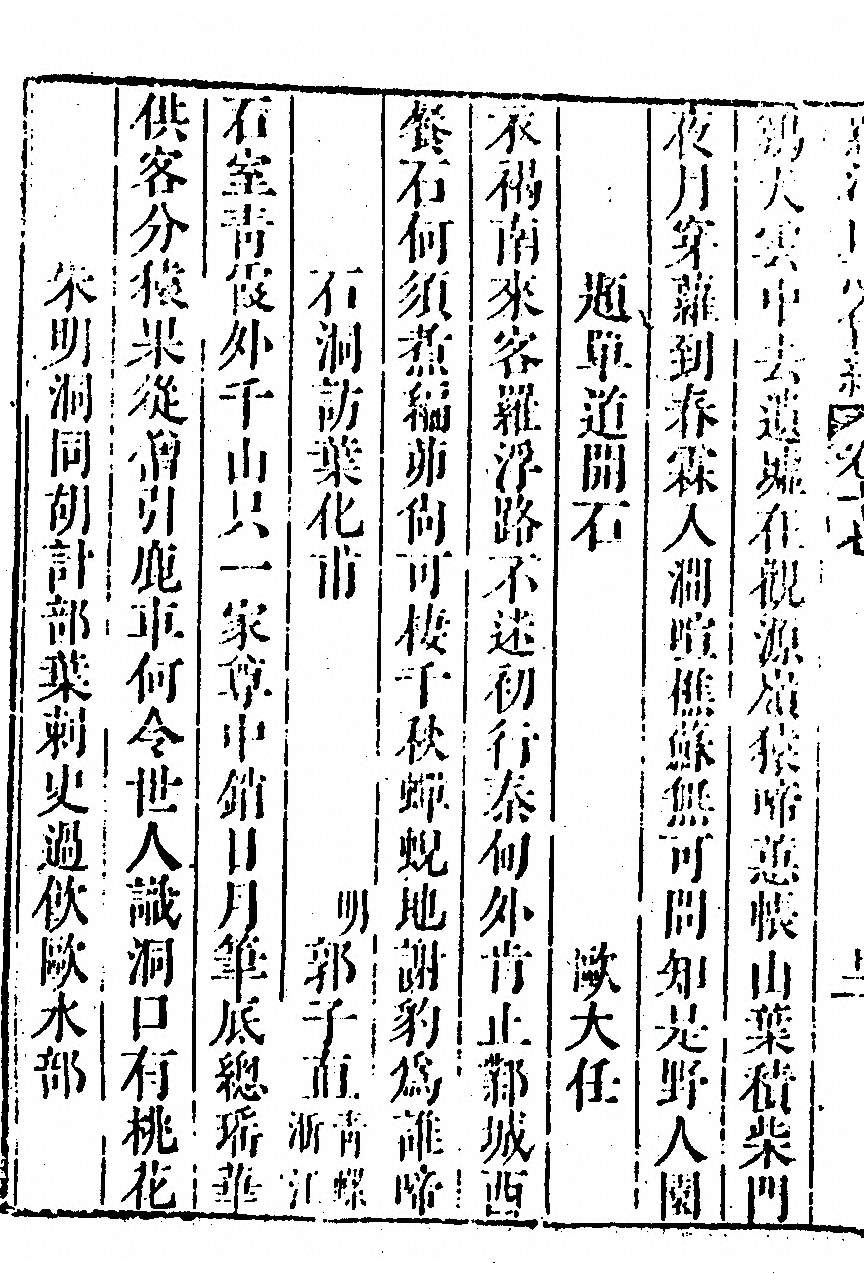 鷄犬雲中去遺墟在觀源嶺猿啼蕙帳山葉積柴門
夜月穿蘿到春霖人澗喧樵蘇無可問知是野人園
題單道開石 歐大任
衣褐南來客羅浮路不迷初行秦甸外肯止鄴城西
餐石何須煮編茆尙可棲千秋蟬蛻地謝豹爲誰啼
石洞訪葉化甫 明郭子直 青螺浙江
石室靑霞外千山只一家尊中銷日月筆底總瑤華
供客分猿果從僧引鹿車何令世人識洞口有桃花
朱明洞同胡計部葉刺史過飮歐水部